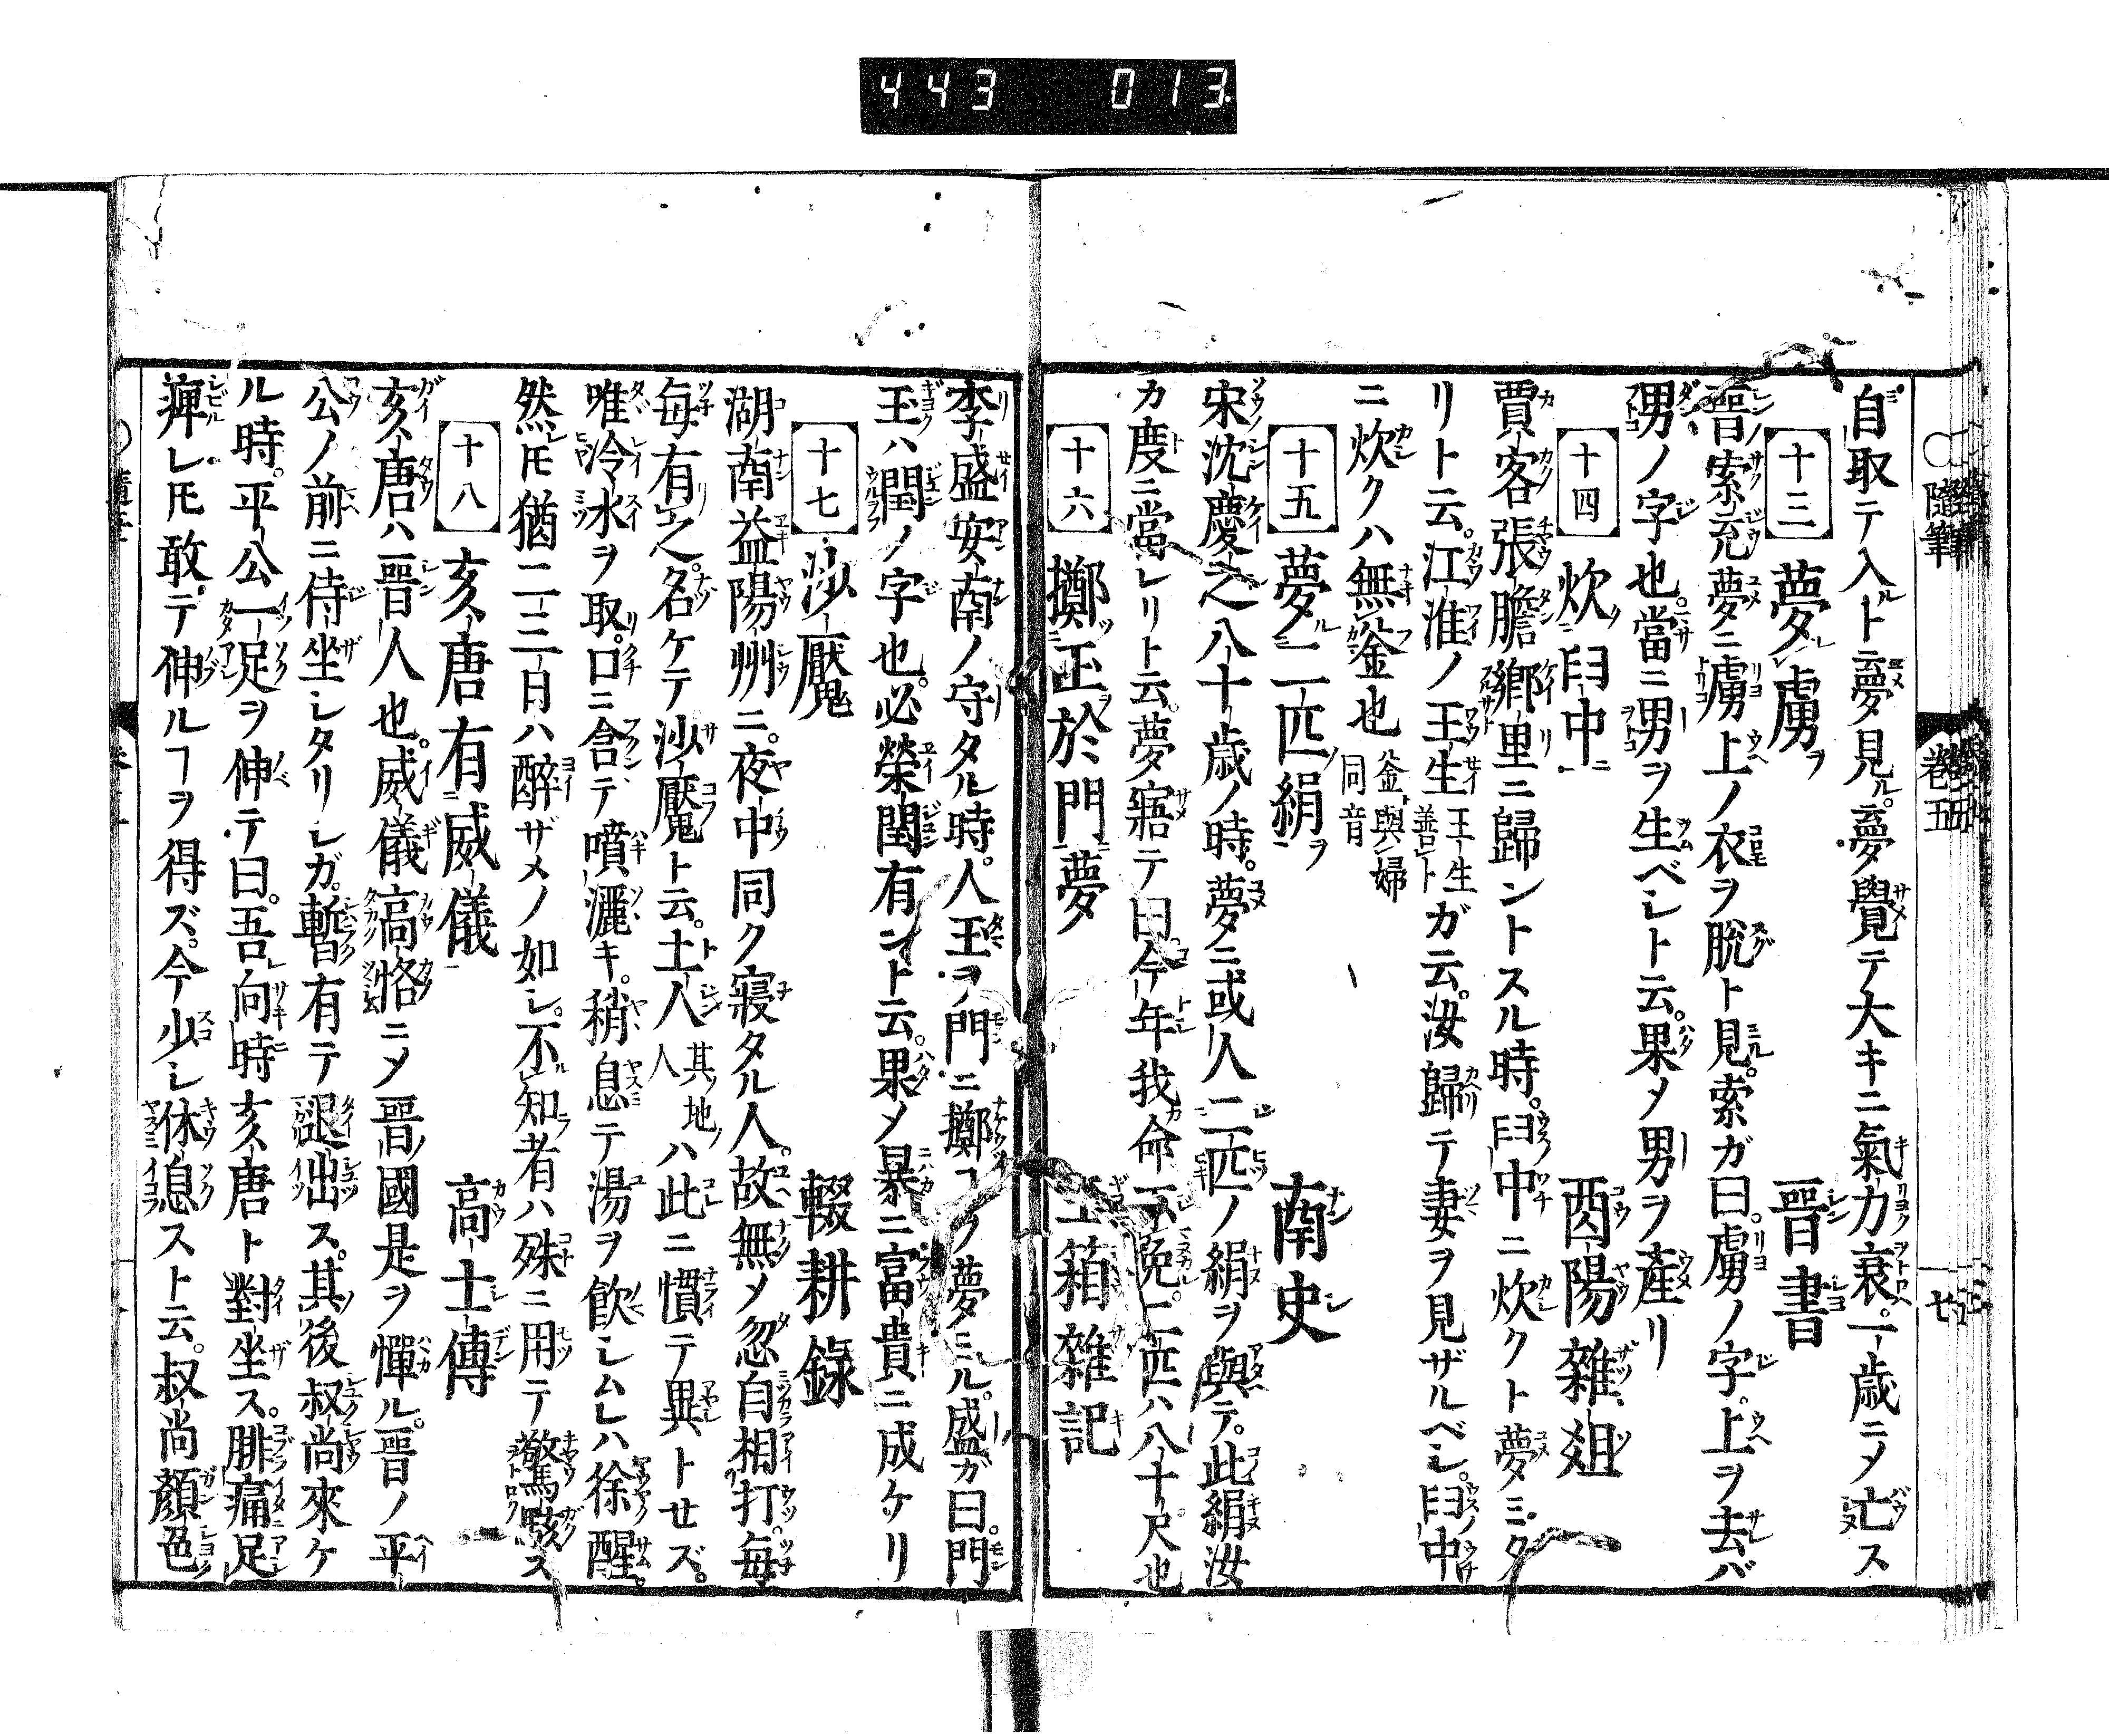 443 013
隨筆 卷五 七
自取テ入ルト夢見ル。夢覺テ大キニ氣力衰。一歳ニメ亡ス
十三 夢虜ヲ 晉書
晉ノ索充夢ニ虜上ノ衣ヲ脫ト見ル。索ガ曰。虜ノ字。上ヲ去バ
男ノ字也。當ニ男ヲ生ベシト云。果メ男ヲ產リ
十四 炊臼中ニ 酉陽雜爼
賈客張瞻鄉里ニ歸ントスル時。臼中ニ炊クト夢ミタ
リト云。江淮ノ王生 王生善卜 ガ云。汝歸テ妻ヲ見ザルベシ。臼中
ニ炊クハ無釜也 釜與婦同音
十五 夢二匹絹ヲ 南史
宋沈慶之八十歳ノ時。夢ニ或人二匹ノ絹ヲ與テ。此絹汝
カ度ニ當レリト云。夢寤テ曰今年我命不免。二匹ハ八十尺也
十六 擲玉於門ニ夢 玉箱雜記
李盛安南ノ守タル時。人玉ヲ門ニ擲ヿヲ夢ミル。盛ガ曰。門
玉ハ閏ノ字也。必榮閏有ント云。果メ暴ニ富貴ニ成ケリ
十七 沙魘 輟耕錄
湖南益陽州ニ。夜中同ク寢タル人。故無メ忽自相打每
每有之。名ケテ沙魘ト云。土人 其ノ地ノ人 ハ此ニ慣テ異トせズ。
唯冷水ヲ取。口ニ含テ噴灑キ。稍息テ湯ヲ飮シムレハ徐醒。
然𪜈猶二三日ハ醉ザメノ如シ。不知者ハ殊ニ用テ驚駭ス
十八 亥唐有威儀 高士傳
亥唐ハ晉人也。威儀高恪ニメ晉國是ヲ憚ル。晉ノ平
公ノ前ニ侍坐シタリシガ。暫有テ退出ス。其後叔尚來ケ
ル時。平公一足ヲ伸テ曰。吾向時亥唐ト對坐ス。腓痛足
痺レ𪜈敢テ伸ルヿヲ得ズ。今少シ休息スト云。叔尚顏色